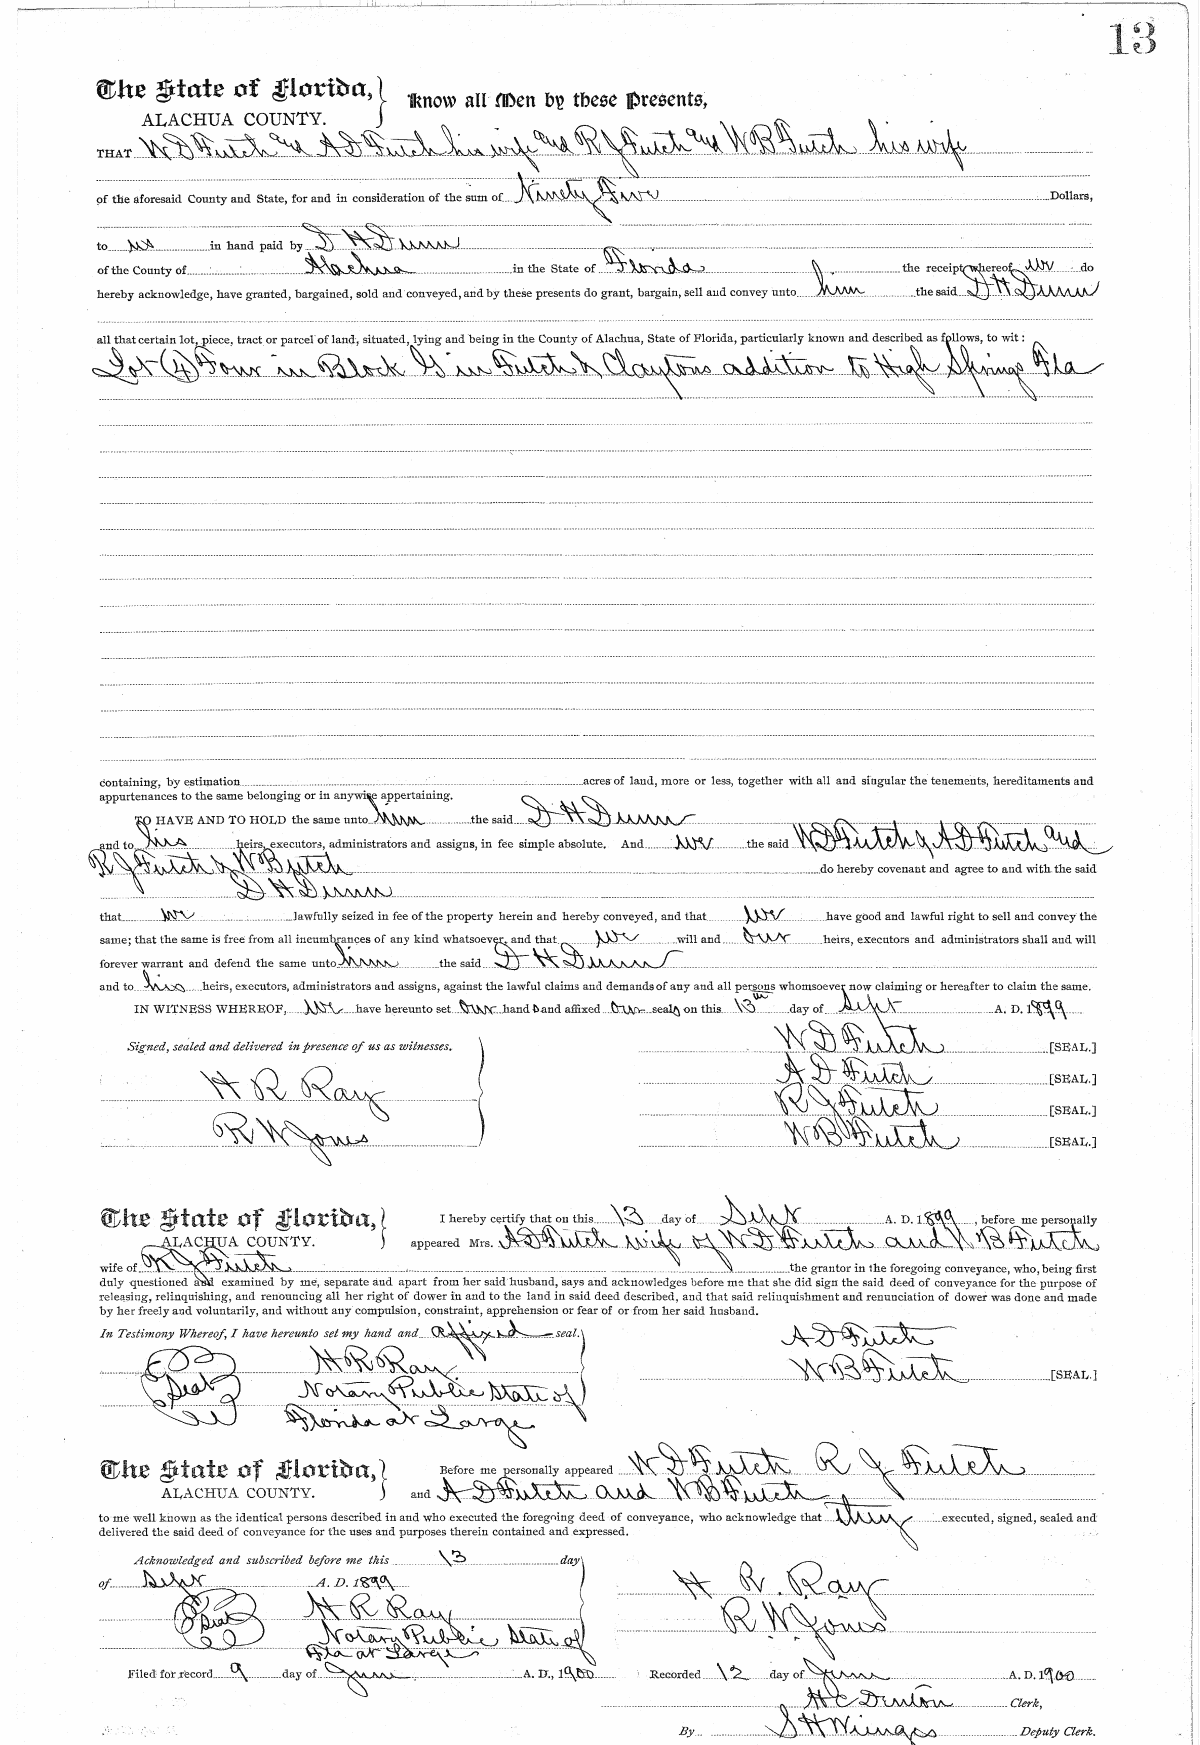 13
The State of Florida, Know all Men by these Presents,
ALACHUA COUNTY.
THAT W D Futch and A D Futch his wife and R J Futch and W B Futch his wife
of the aforesaid County and State, for and in consideration of the sum of Ninety Five Dollars,
to us in hand paid by D H Dunn
of the County of Alachua in the State of Florida the receipt whereof we do
hereby acknowledge, have granted, bargained, sold and conveyed, and by these presents do grant, bargain, sell and convey unto him the said D H Dunn
all that certain lot, piece, tract or parcel of land, situated, lying and being in the County of Alachua, State of Florida, particularly known and described as follows, to wit:
Lot (4) Four in Block G in Futch & Claytons addition to High Springs Fla
containing, by estimation acres of land, more or less, together with all and singular the tenements, hereditaments and
appurtenances to the same belonging or in anywise appertaining.
TO HAVE AND TO HOLD the same unto him the said D H Dunn
and to his heirs, executors, administrators and assigns, in fee simple absolute. And we the said W D Futch & A D Futch and
R J Futch & W B utch do hereby covenant and agree to and with the said
D H Dunn
that we lawfully seized in fee of the property herein and hereby conveyed, and that we have good and lawful right to sell and convey the
same; that the same is free from all incumbrances of any kind whatsoever, and that we will and our heirs, executors and administrators shall and will
forever warrant and defend the same unto him the said D H Dunn
and to his heirs, executors, administrators and assigns, against the lawful claims and demands of any and all persons whomsoever now claiming or hereafter to claim the same.
IN WITNESS WHEREOF, we have hereunto set our hands and affixed our seals on this 13th day of Sept A. D. 1899
Signed, sealed and delivered in presence of us as witnesses. W D Futch [SEAL.]
A D Futch [SEAL.]
H R Ray R J Futch [SEAL.]
R W Jones W B Futch [SEAL.]
The State of Florida, I hereby certify that on this 13 day of Sept A. D. 1899, before me personally
ALACHUA COUNTY. appeared Mrs. A D Futch wife of W D Futch and W B Futch
wife of R J Futch the grantor in the foregoing conveyance, who, being first
duly questioned and examined by me, separate and apart from her said husband, says and acknowledges before me that she did sign the said deed of conveyance for the purpose of
releasing, relinquishing, and renouncing all her right of dower in and to the land in said deed described, and that said relinquishment and renunciation of dower was done and made
by her freely and voluntarily, and without any compulsion, constraint, apprehension or fear of or from her said husband.
In Testimony Whereof, I have hereunto set my hand and affixed seal. A D Futch
H R Ray W B Futch [SEAL.]
Seal Notary Public State of
Florida at Large
The State of Florida, Before me personally appeared W D Futch R J Futch
ALACHUA COUNTY. and A D Futch and W B Futch
to me well known as the identical persons described in and who executed the foregoing deed of conveyance, who acknowledge that they executed, signed, sealed and
delivered the said deed of conveyance for the uses and purposes therein contained and expressed.
Acknowledged and subscribed before me this 13 day
of Sept A. D. 1899 H R Ray
Seal H R Ray R W Jones
Notary Public State of
Fla at Large
Filed for record 9 day of June A. D., 1900 Recorded 12 day of June A. D. 1900
H C Denton Clerk,
By S H Wienges Deputy Clerk.